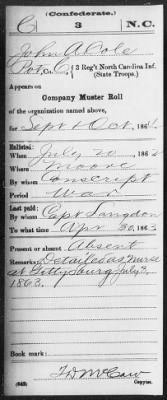 (Confederate.)
C 3 N.C.
John A Cole
Pvt, Co. C, 3 Reg't North Carolina Inf.
(State Troops.)
Appears on
Company Muster Roll
of the organization named above,
for Sept & Oct, 186
Enlisted:
When July 20, 186
Where Moore
By whom Conscript
Period War
Last paid:
By whom Capt Langdon
To what time Apr 30, 1863
Present or absent Absent
Remarks: Detailed as Nurse
at Gettysburg July 3,
1863.
Book mark:
Copyist.